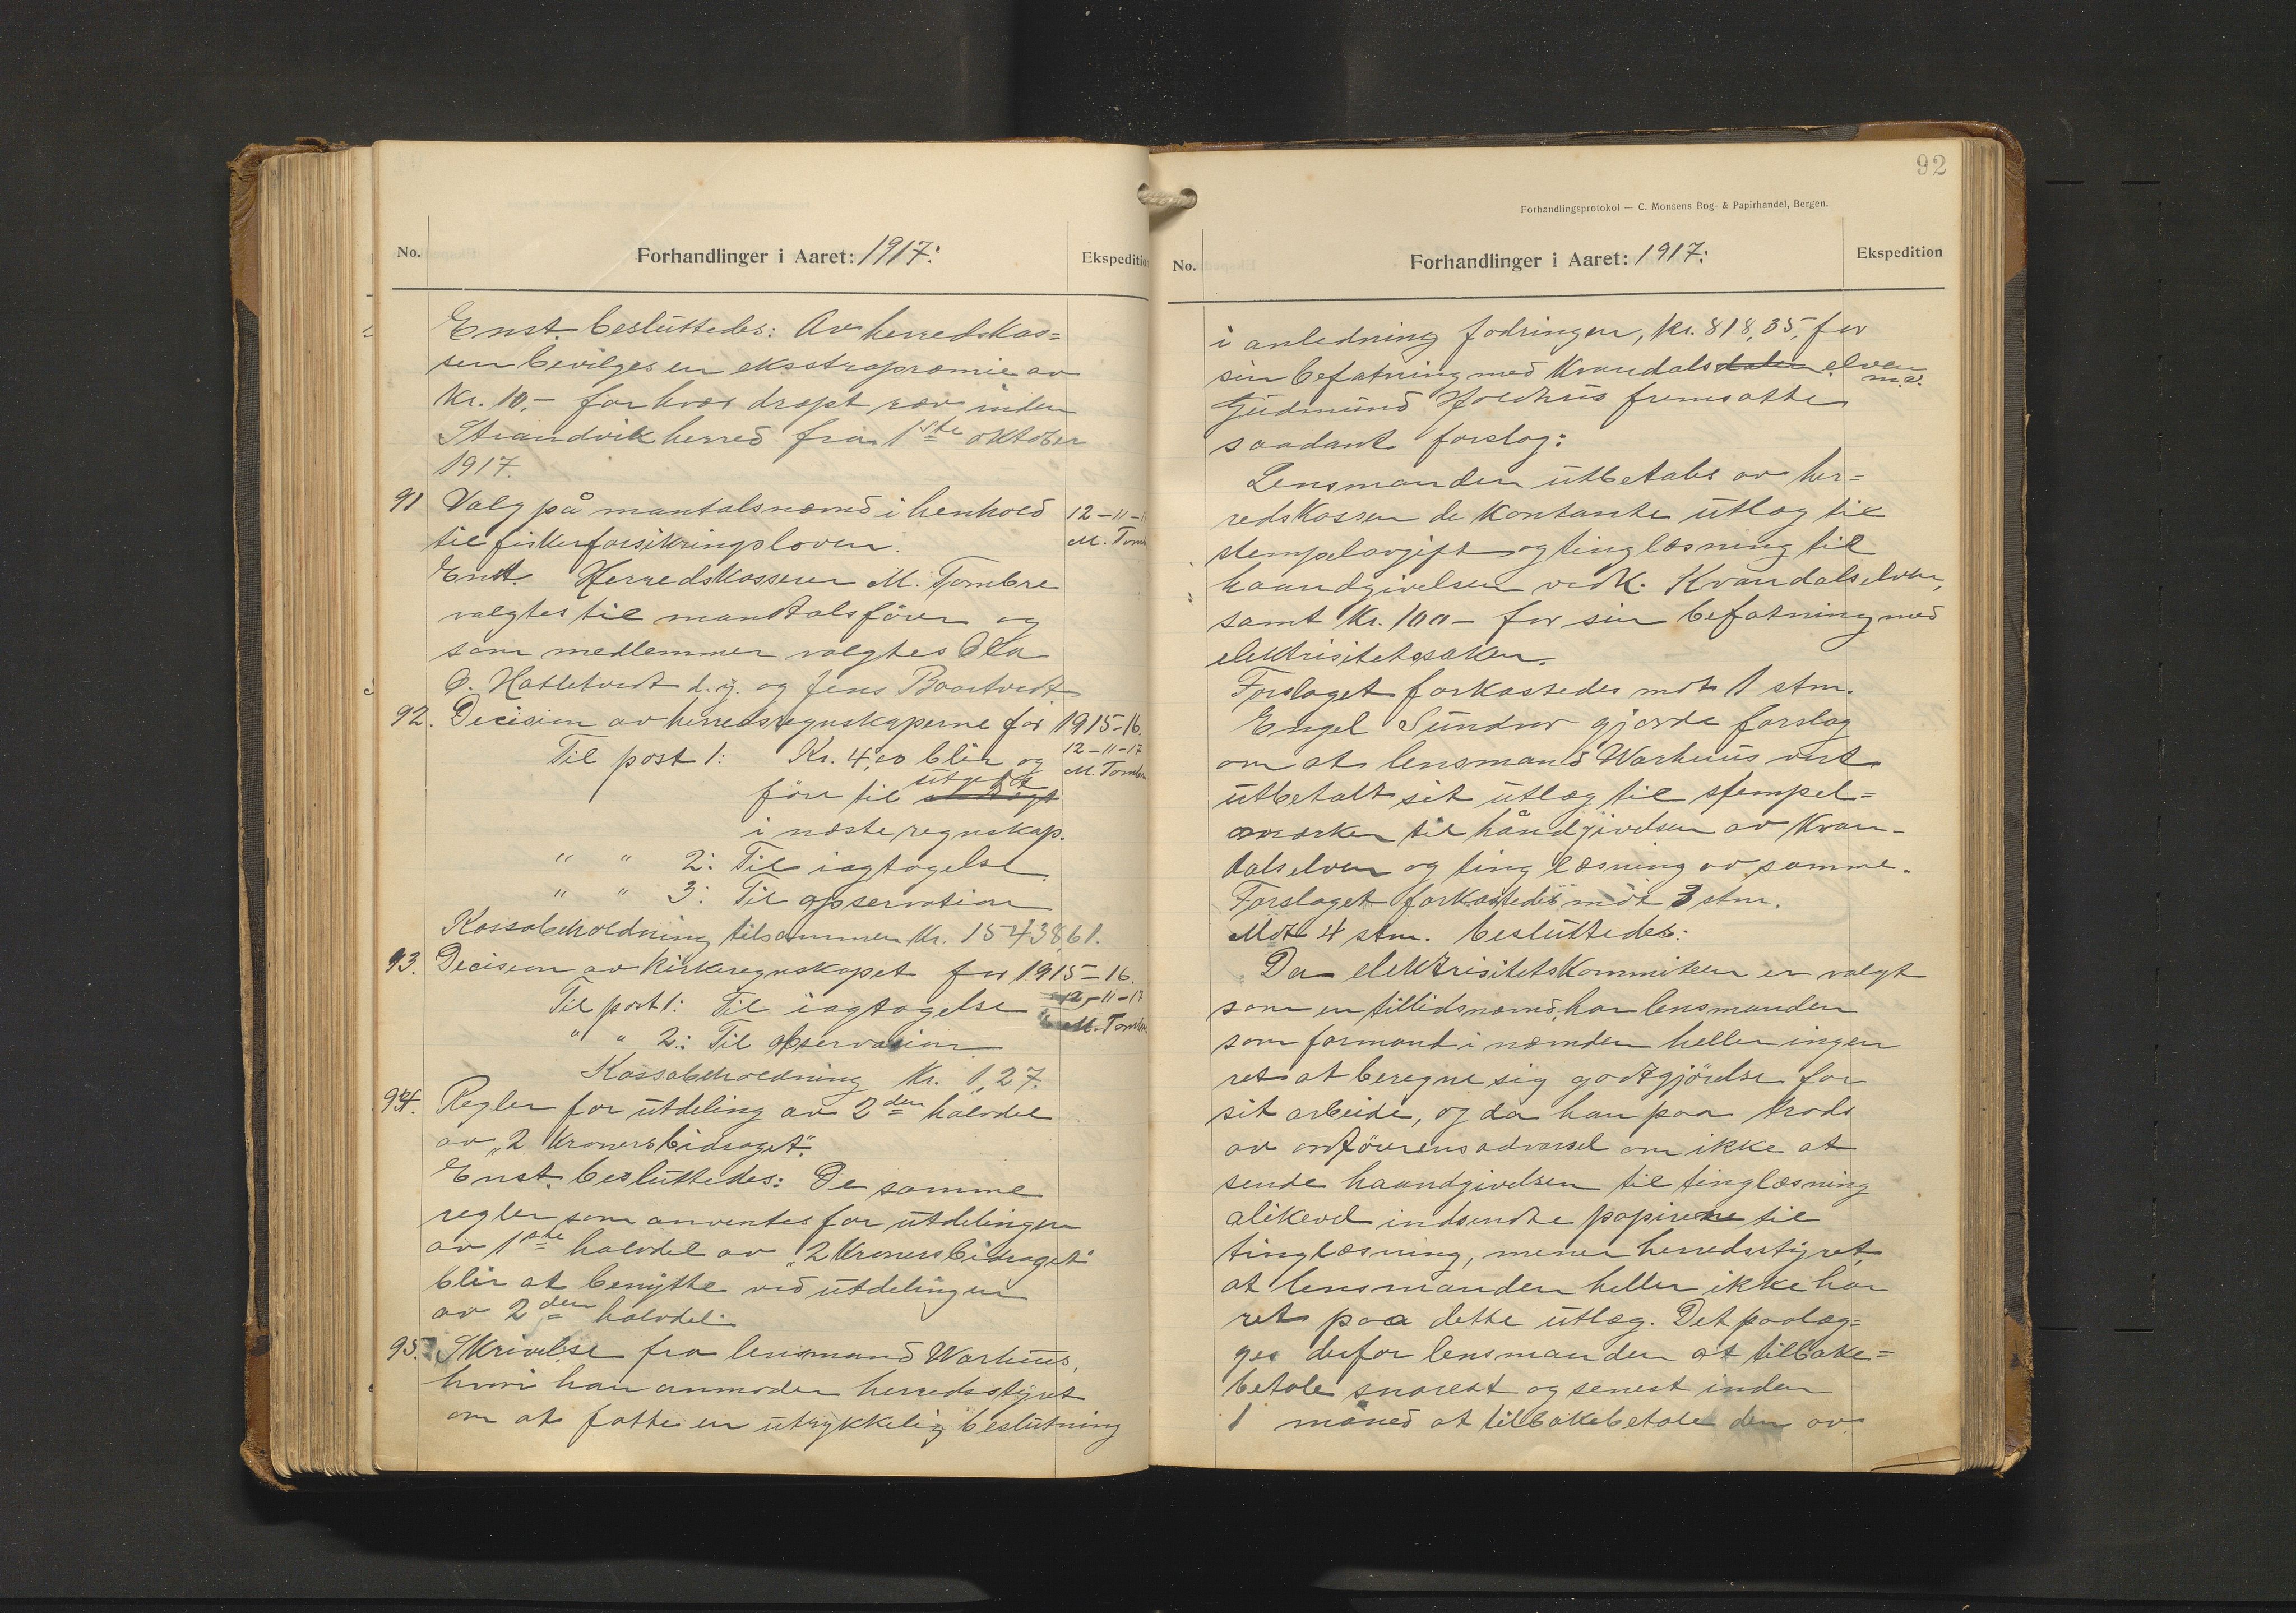 No. Forhandlinger i Aaret: 1917. Ekspedition
Enst. besluttedes: Av herredskas=
sen bevilges en eksstrapræmie av
Kr. 10,- for hver dræpt ræv inden
Strandvik herred fra 1ste oktober
1917.
91 Valg på mantalsnæmd i henhold 12-11-1
til fiskerforsikringsloven. M. Tom
Enst. Herredskasserer M. Tombre
valgtes til mandtalsfører og
som medlemmer valgtes Ola
O. Hatletvedt d.y. og Jens Boortvedt
92. Decision av herredsregnskaperne for 1915-16.
Til post 1: Kr. 4,00 blir og 12-11-17
føre til utgift M. Tombre
i næste regnskap.
" " 2: Til iagtagelse
" " 3: Til opservation
Kassabeholdning tilsammen Kr. 15438,61.
93. Decision av kirkeregnskapet for 1915-16.
Til post 1: Til iagtagelse 12-11-17
" " 2: Til observasion M. Tombre
Kassabeholdning Kr. 1,27.
94. Regler for utdeling av 2den halvdel
av "2 Kronersbidraget".
Enst. besluttedes: De samme
regler som anventes for utdelingen
av 1ste halvdel av "2 Kronersbidraget"
blir at benytte ved utdelingen
av 2den halvdel.
95. Skrivelse fra lensmand Warhuus,
hvori han anmoder herredsstyret
om at fatte en utrykkelig beslutning
92
Forhandlingsprotokol — C. Monsens Bog- & Papirhandel, Bergen.
No. Forhandlinger i Aaret: 1917. Ekspedition
i anledning fodringen, kr. 818,35, for
sin befatning med Kvandalsdalen elven
m.v.
Gudmund Holdhus fremsatte
saadant forslag:
Lensmanden utbetales av her=
redskassen de kontante utlæg til
stempelavgift og tinglæsning til
haandgivelsen vedk. Kvandalselven,
samt Kr. 100- for sin befatning med
elektrisitetssaken.
Forslaget forkastedes mot 1 stm.
Engel Sundvor gjorde forslag
om at lensmand Warhuus vert
utbetalt sit utlæg til stempel=
mærker til håndgivelsen av Kvan-
dalselven og tinglæsning av samme.
Forslaget forkastedes mot 3 stm.
Mot 4 stm. besluttedes:
Da elektrisitetskommiteen er valgt
som en tillidsnæmd, har lensmanden
som formand i næmden heller ingen
ret at beregne sig godtgjørelse for
sit arbeide, og da han paa trods
av ordførerens advarsel om ikke at
sende haandgivelsen til tinglæsning
alikevel indsendte papirene til
tinglæsning, mener herredsstyret,
at lensmanden heller ikke har
ret paa dette utlæg. Det paalæg=
ges derfor lensmanden at tilbake=
betale snarest og senest inden
1 måned at tilbakebetale den av